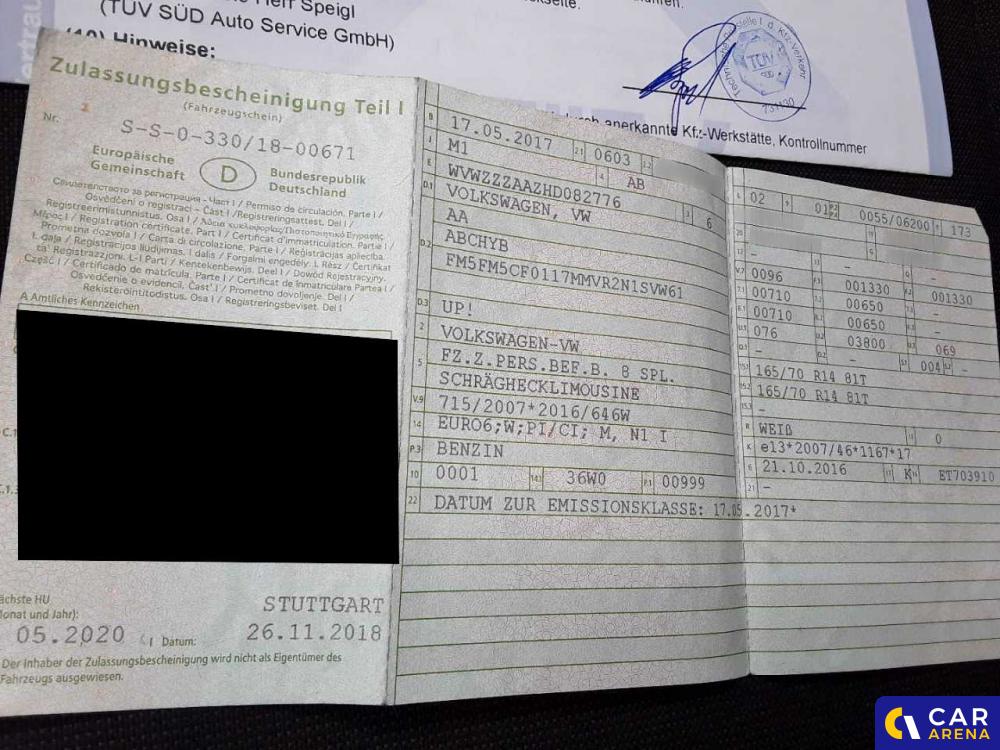 Herr Speigl
(TÜV SÜD Auto Service GmbH)
(10) Hinweise:
Technische
d. Kfz-Verkehr
TÜV
durch anerkannte Kfz-Werkstätte, Kontrollnummer
Zulassungsbescheinigung Teil I
(Fahrzeugschein)
Nr.
S-S-0-330/18-00671
Europäische Gemeinschaft
D
Bundesrepublik Deutschland
Свидетелство за регистрация - Част I / Permiso de circulación. Parte I /
Osvědčení o registraci - Část I / Registreringsattest. Del I /
Registreerimistunnistus. Osa I / Άδεια κυκλοφορίας/Πιστοποιητικό Εγγραφής
Μέρος I / Registration certificate. Part I / Certificat d'immatriculation. Partie I /
Prometna dozvola I / Carta di circolazione. Parte I / Reģistrācijas apliecība.
I. daļa / Registracijos liudijimas. I dalis / Forgalmi engedély. I. Rész / Ċertifikat
ta' Reġistrazzjoni. L-I Parti / Kentekenbewijs. Deel I / Dowód Rejestracyjny.
Część I / Certificado de matrícula. Parte I / Certificat de înmatriculare Partea I /
Osvedčenie o evidencii. Časť I / Prometno dovoljenje. Del I /
Rekisteröintitodistus. Osa I / Registreringsbeviset. Del I
A Amtliches Kennzeichen
C.1.3
ächste HU
onat und Jahr):
05.2020
Datum:
STUTTGART
26.11.2018
Der Inhaber der Zulassungsbescheinigung wird nicht als Eigentümer des
Fahrzeugs ausgewiesen.
B 17.05.2017 2.1 0603 2.2
J M1 4 AB
E WVWZZZAAZHD082776 3 6
D.1 VOLKSWAGEN, VW
AA
D.2 ABCHYB
FM5FM5CF0117MMVR2N1SVW61
D.3 UP!
2 VOLKSWAGEN-VW
5 FZ.Z.PERS.BEF.B. 8 SPL.
SCHRÄGHECKLIMOUSINE
V.9 715/2007*2016/646W
14 EURO6;W;PI/CI; M, N1 I
P.3 BENZIN
10 0001 14.1 36W0 P.1 00999
22 DATUM ZUR EMISSIONSKLASSE: 17.05.2017*
L 02 9 01 P.2 P.4 0055/06200 T 173
- - -
V.7 0096 F.1 001330 F.2 001330
7.1 00710 7.2 00650 -
8.1 00710 8.2 00650 -
U.1 076 U.2 03800 U.3 069
O.1 - O.2 - S.1 004 S.2 -
15.1 165/70 R14 81T
15.2 165/70 R14 81T
15.3 -
R WEIß 11 0
K e13*2007/46*1167*17
6 21.10.2016 17 K 16 ET703910
21 -
CAR
ARENA